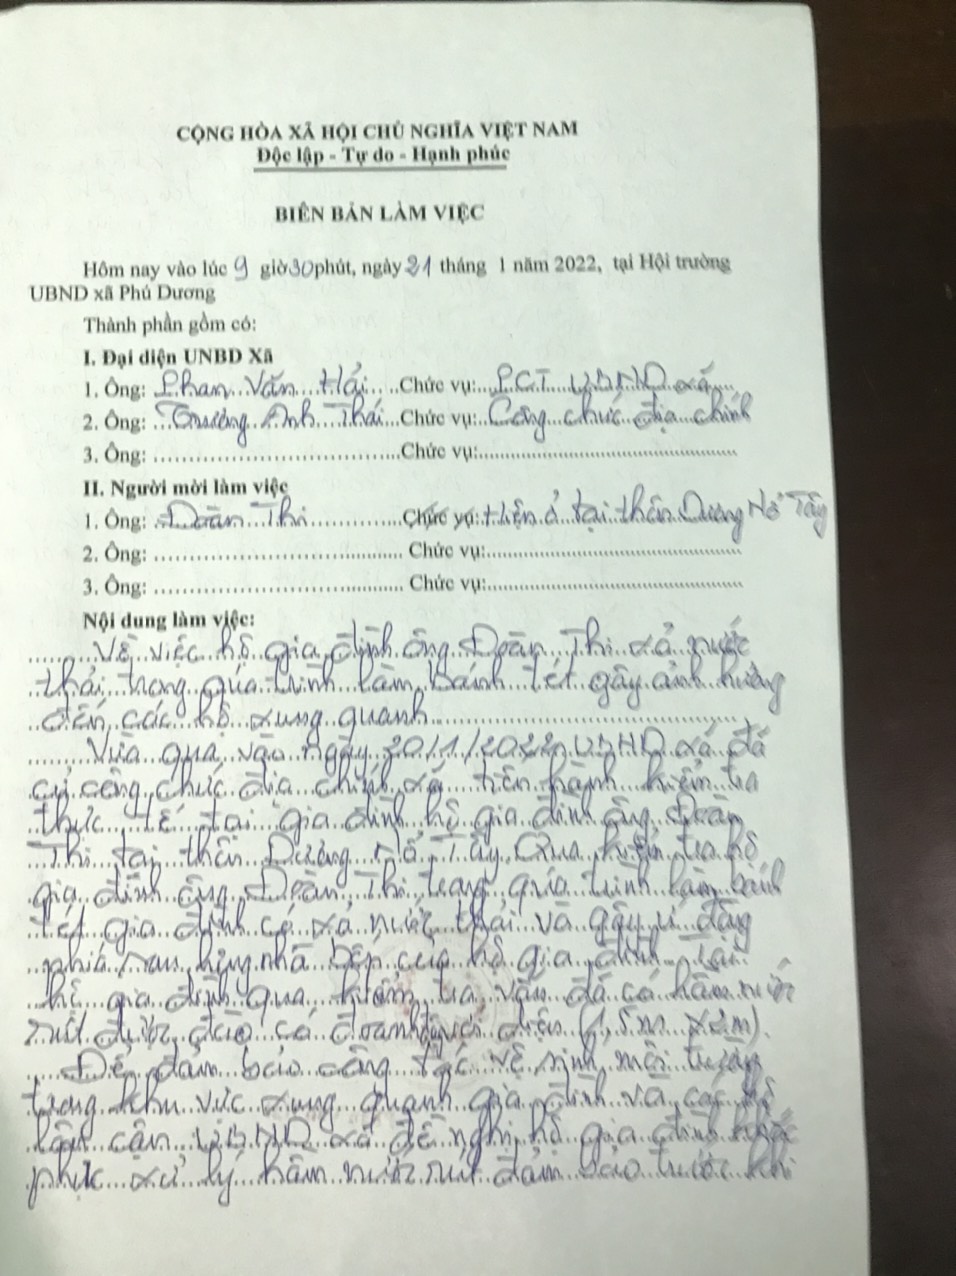 CỘNG HÒA XÃ HỘI CHỦ NGHĨA VIỆT NAM
Độc lập - Tự do - Hạnh phúc
BIÊN BẢN LÀM VIỆC
Hôm nay vào lúc 9 giờ 30 phút, ngày 21 tháng 1 năm 2022, tại Hội trường
UBND xã Phú Dương
Thành phần gồm có:
I. Đại diện UNBD Xã
1. Ông: Phan Văn Hải Chức vụ: P.CT UBND xã
2. Ông: Trương Anh Thái Chức vụ: Công chức địa chính
3. Ông: Chức vụ:
II. Người mời làm việc
1. Ông: Đoàn Thi Chức vụ: Hiện ở tại thôn Dương Nổ Tây
2. Ông: Chức vụ:
3. Ông: Chức vụ:
Nội dung làm việc:
Về việc hộ gia đình ông Đoàn Thi xả nước
thải trong quá trình làm bánh tét gây ảnh hưởng
đến các hộ xung quanh
Vừa qua, vào ngày 20/1/2022 UBND xã đã
cử công chức địa chính xã tiến hành kiểm tra
thực tế tại gia đình hộ gia đình ông Đoàn
Thi tại thôn Dương Nổ Tây. Qua kiểm tra hộ
gia đình ông Đoàn Thi trong quá trình làm bánh
tét gia đình có xả nước thải và gây ứ đọng
phía sau hông nhà bếp của hộ gia đình. Tại
hộ gia đình qua kiểm tra vẫn đã có hầm nước
rút được đào có diện (1,5m x 2m).
Để đảm bảo công tác vệ sinh môi trường
trong khu vực xung quanh gia đình và các hộ
lân cận UBND xã đề nghị hộ gia đình khắc
phục xử lý hầm nước rút đảm bảo trước khi